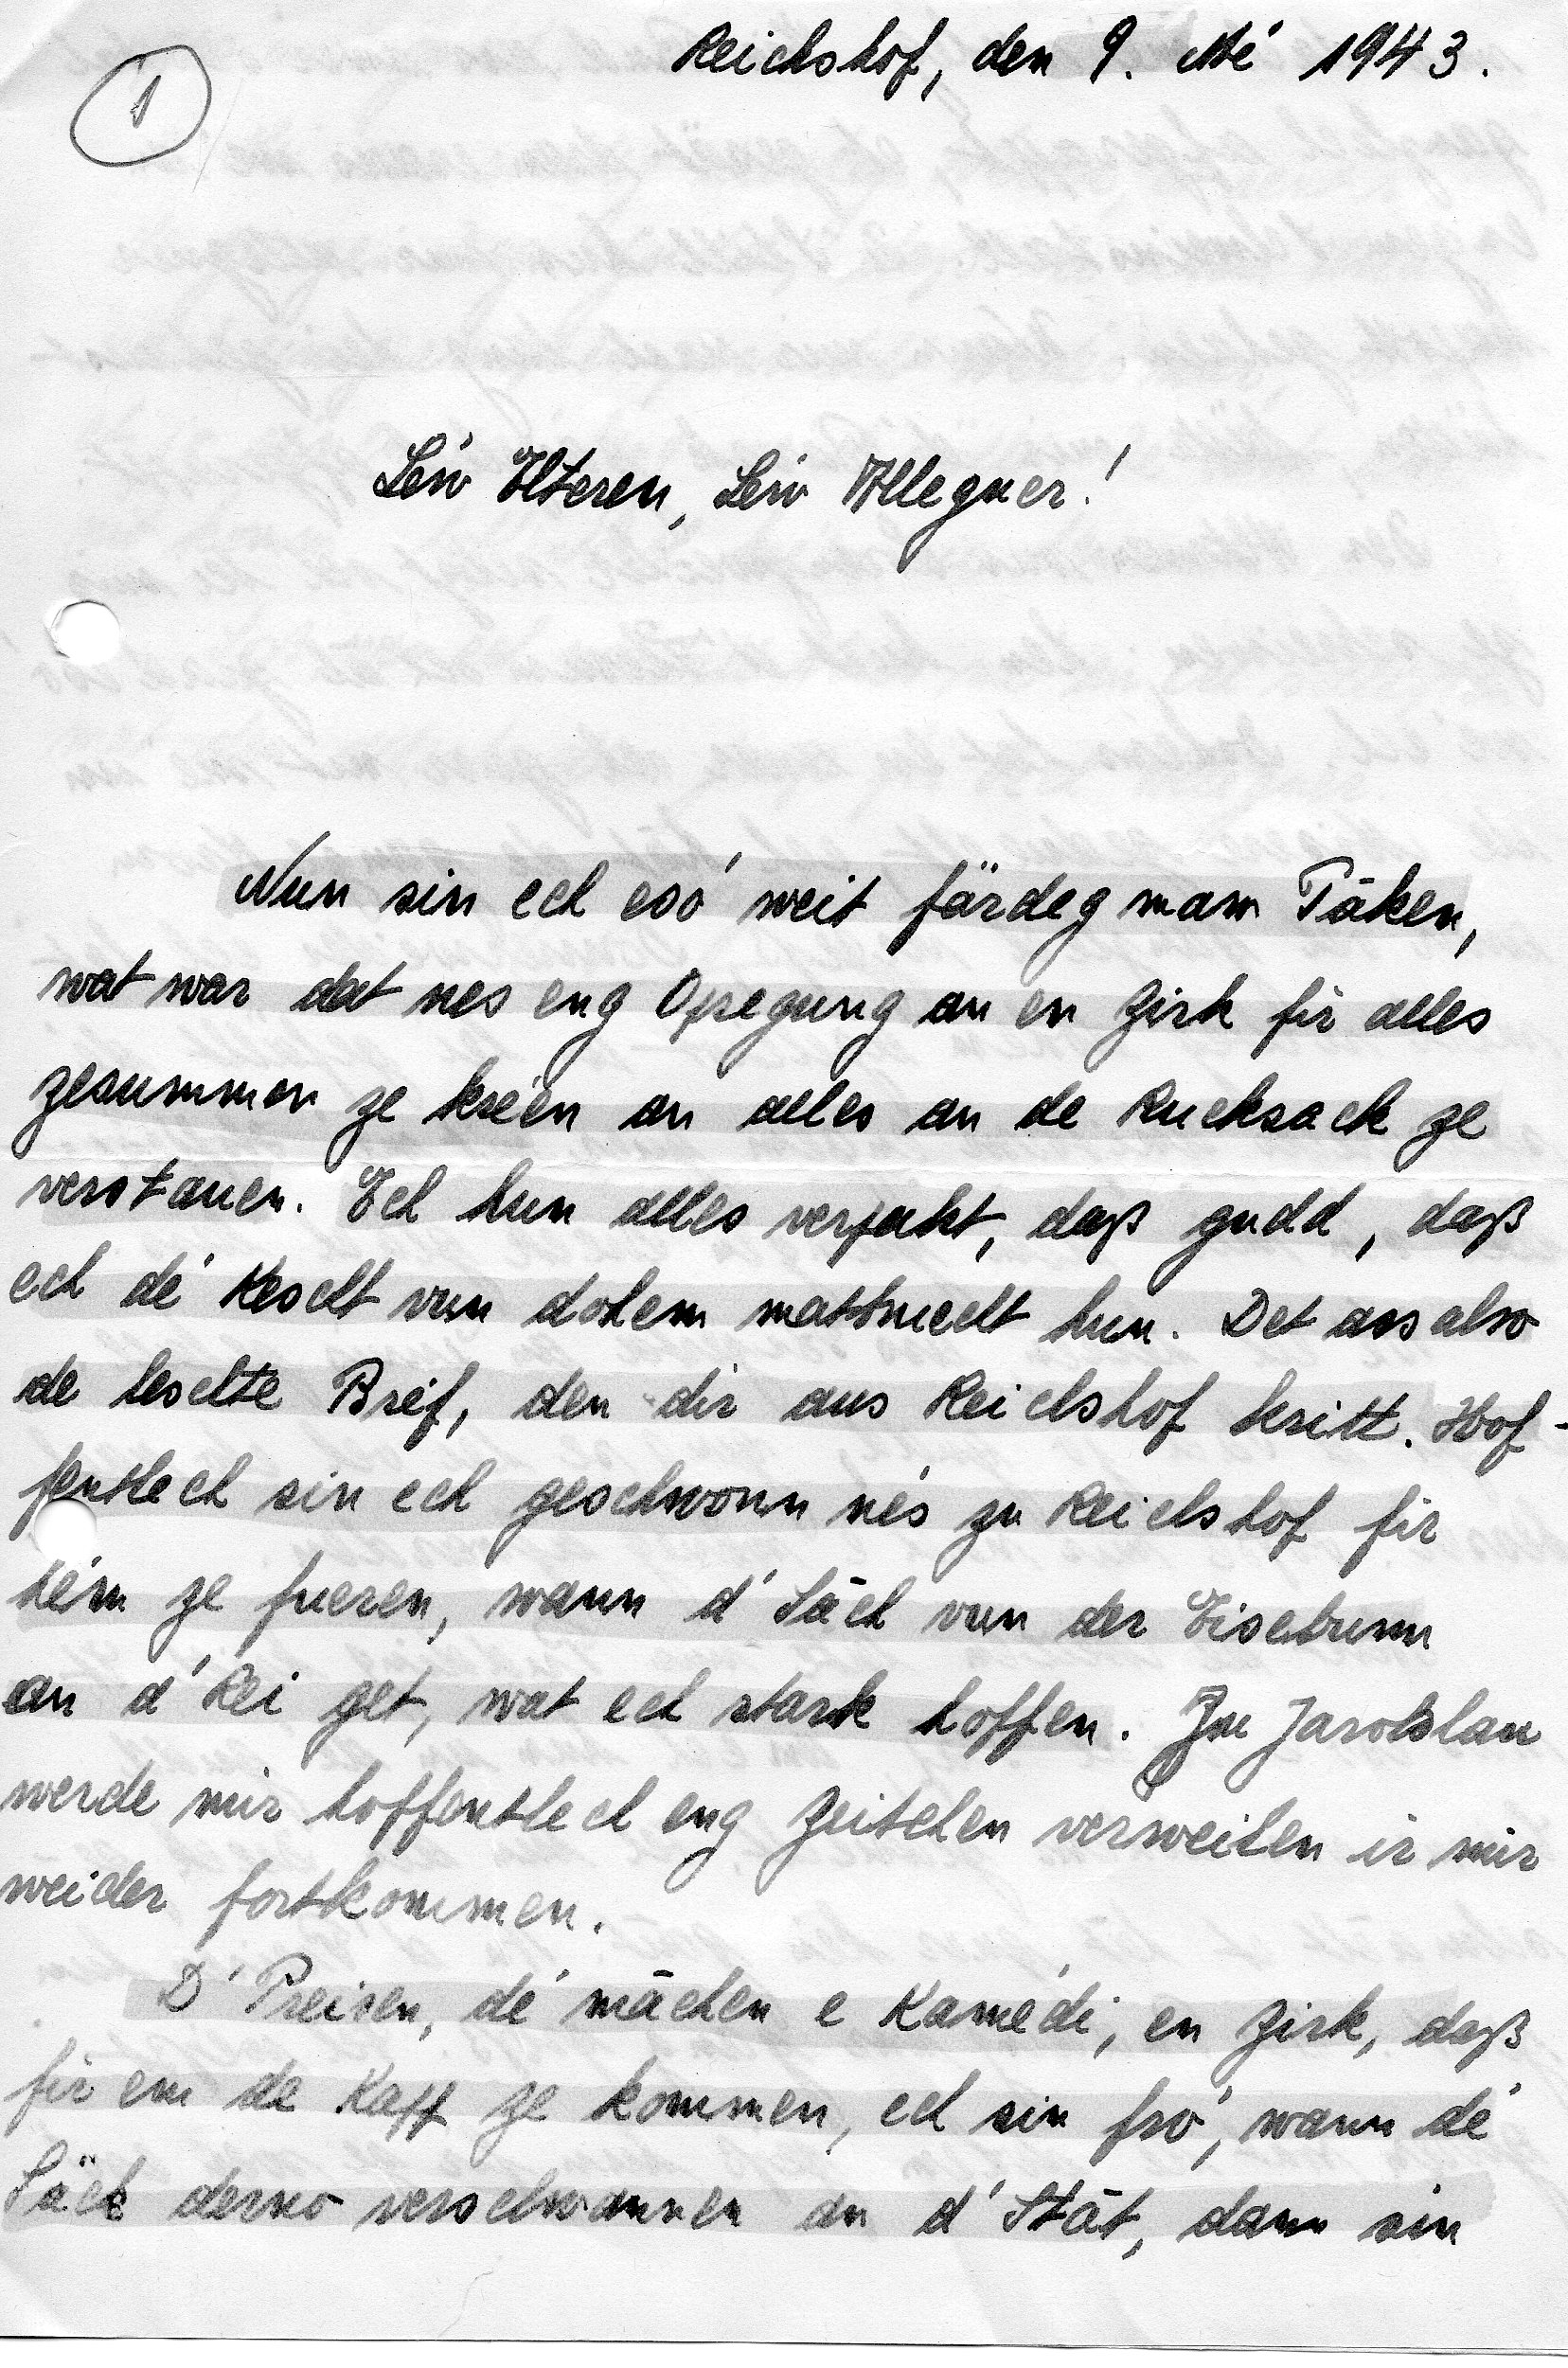 1
Reichshof, den 9. Mé 1943.
Léiv Elteren, Léiv Alleguer!
Nun sin ech esó weit färdeg mam Päken,
wat war dat nes eng Opregung an en Zirk fir alles
zesummen ze kréen an alles an de Rucksack ze
verstauen. Ech hun alles verpakt, daß gudd, daß
ech dé Kescht vun dohem matbruecht hun. Det ass also
de leschte Bréf, den dir aus Reichshof kritt. Hof-
fentlech sin ech geschwonn nés zu Reichshof fir
hém ze fueren, wann d' Säch vun der Eisebunn
an d' Rei get, wat ech stark hoffen. Zu Jaroslau
werde mir hoffentlech eng Zeitchen verweilen ir mir
weider fortkommen.
D' Preisen, dé mächen e Kamédi, en Zirk, daß
fir em de Kapp ze kommen, ech sin fró, wann dé
Säck derno verschwannen an d' Stät, dann sin